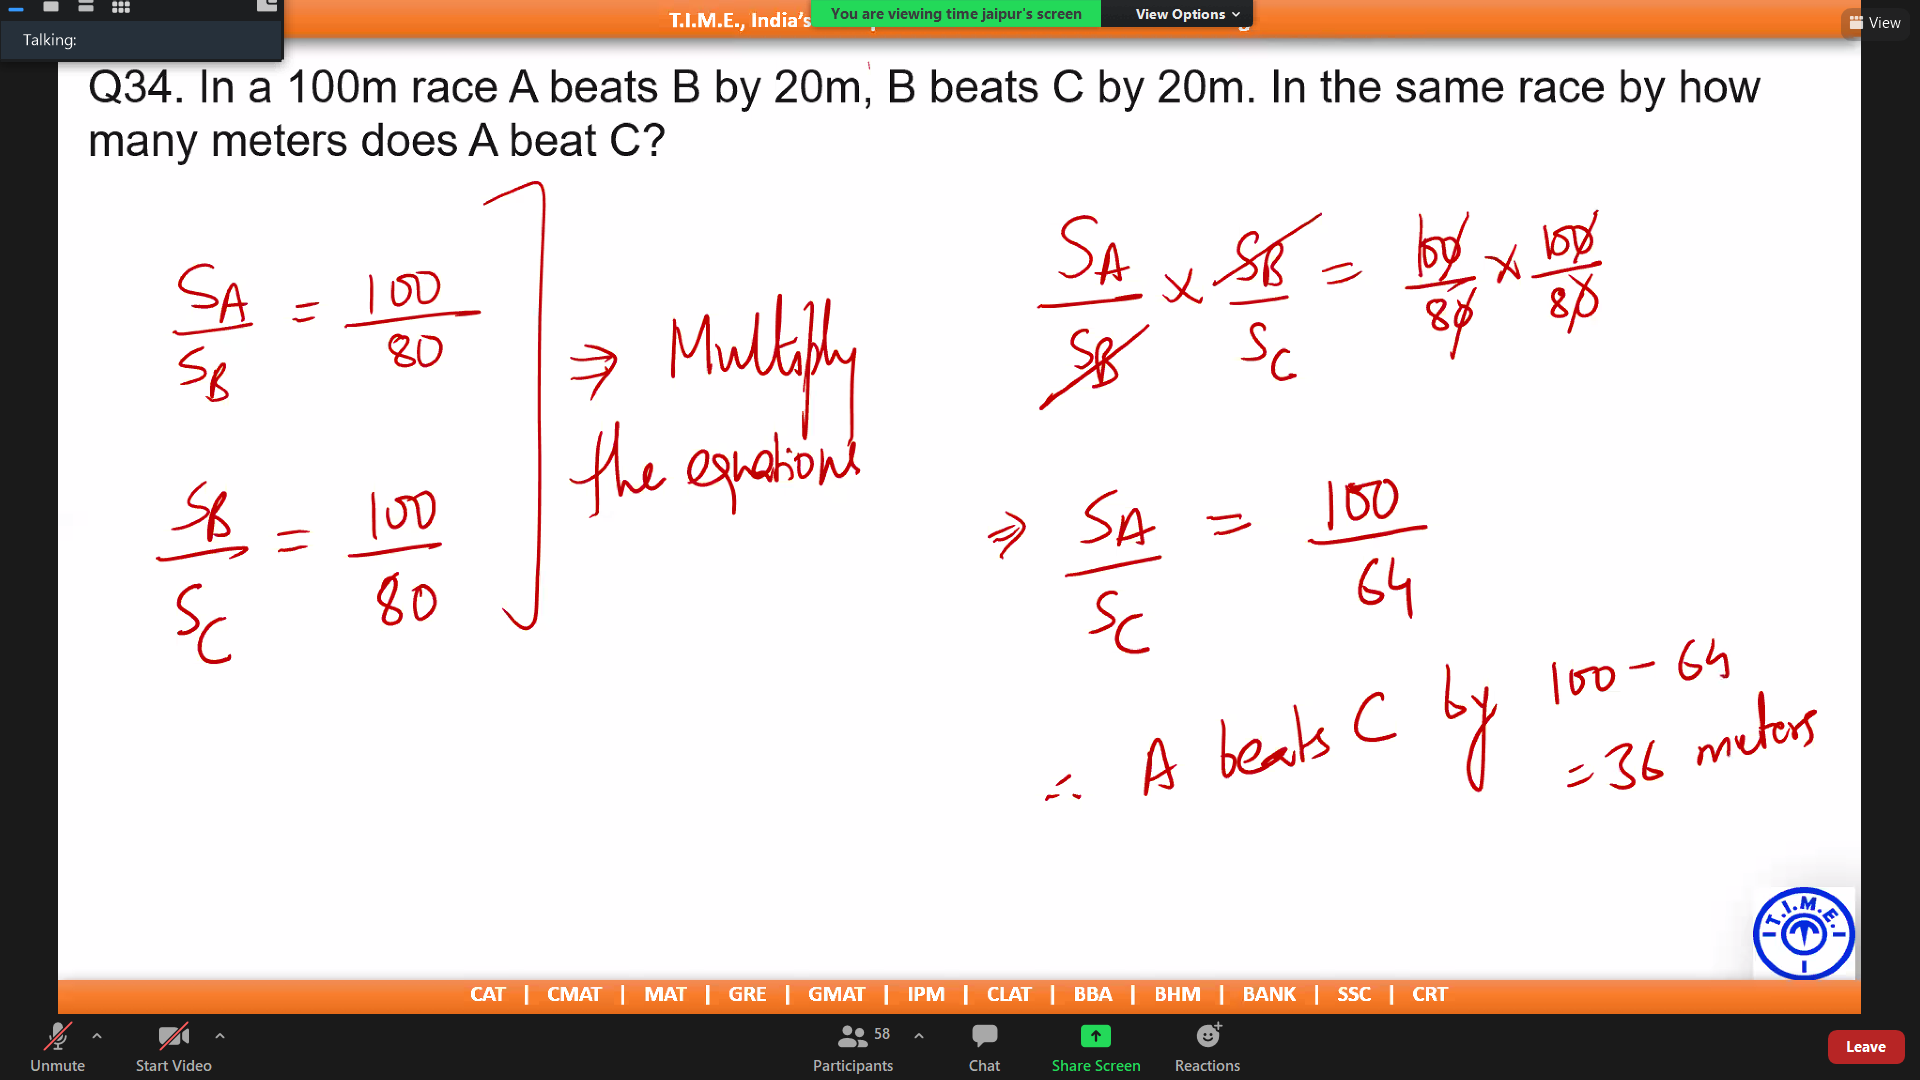 T.I.M.E., India's
You are viewing time jaipur's screen
View Options
View
Talking:
Q34. In a 100m race A beats B by 20m, B beats C by 20m. In the same race by how
many meters does A beat C?
S_A / S_B = 100 / 80
S_B / S_C = 100 / 80
⇒ Multiply
the equations
S_A / S_B × S_B / S_C = 100 / 80 × 100 / 80
⇒ S_A / S_C = 100 / 64
∴ A beats C by 100 - 64
= 36 meters
T.I.M.E.
CAT | CMAT | MAT | GRE | GMAT | IPM | CLAT | BBA | BHM | BANK | SSC | CRT
Unmute
Start Video
58
Participants
Chat
Share Screen
Reactions
Leave